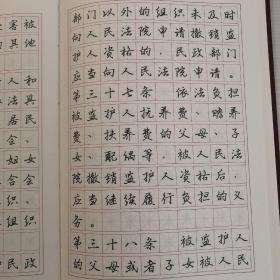 害被
其他
人和
法具
居民
会、
妇女
合会
组织
组织
民政
部门以外的组织未及时
向人民法院申请撤销监
护人资格的，民政部门
应当向人民法院申请。
第三十七条 依法负担
被监护人抚养费、赡养
费、扶养费的父母、子
女、配偶等，被人民法
院撤销监护人资格后，
应当继续履行负担的义
务。
第三十八条 被监护人
的父母或者子女被人民